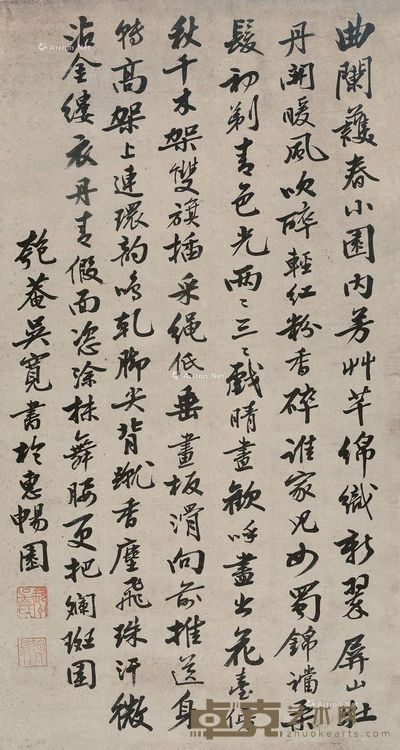 曲闌護春小園內芳艸芊綿織新翠屏山牡
丹開暖風吹碎輕紅粉香碎誰家兒女蜀錦襠柔
髮初剃青色光兩﹦三﹦戲晴晝歡呼盡出花臺傍
秋千木架雙旗插采繩低垂畫板滑向前推送身
轉高架上連環韵鳴乾腳尖背蹴香塵飛珠汗微
沾金縷衣丹青假面恣塗抹舞腰更把斕斑圍
匏菴吳寬書於惠暢園
Artron.Net
卓克艺术网
www.zhuokearts.com